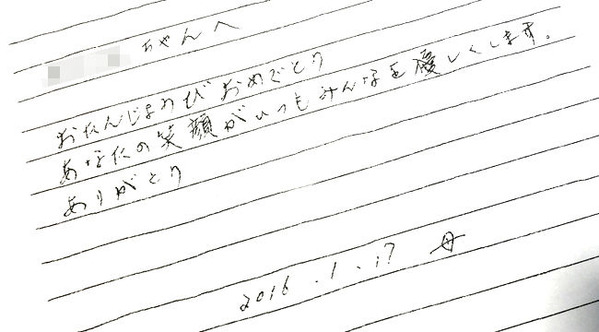 ちゃんへ
おたんじょうびおめでとう
あなたの笑顔がいつもみんなを優しくします。
ありがとう
2016.1.17 母